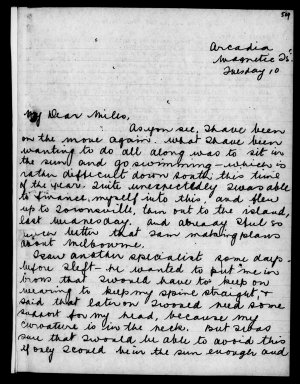 509
Arcadia
Magnetic Is.
Tuesday 10
My Dear Miles,
As you see, I have been
on the move again. What I have been
wanting to do all along was to sit in
the sun and go swimming – which is
rather difficult down south this time
of the year. Quite unexpectedly I was able
to finance myself into this, and flew
up to Townsville, then out to the island,
last Wednesday, and already I feel so
much better that I am making plans
about Melbourne.
I saw another specialist some days
before I left – he wanted to put me in
irons that I would have to keep on
wearing to keep my spine straight, &
said that later on I would need some
support for my head, because my
curvature is in the neck. But I was
sure that I would be able to avoid this
if only I could be in the sun enough and